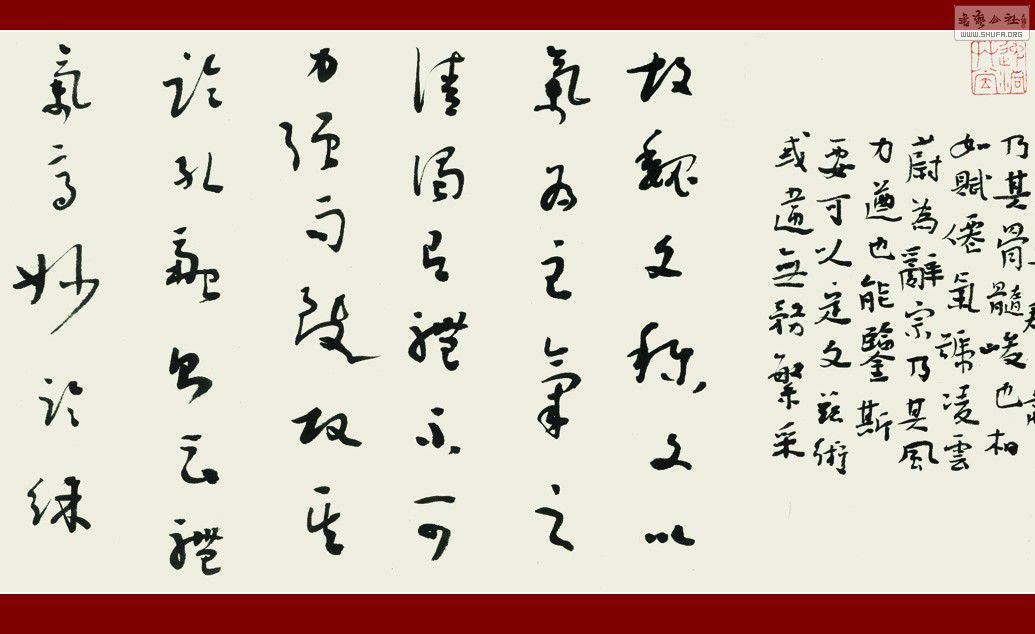 書藝公社
WWW.SHUFA.ORG
乃其骨髓峻也相
如賦僊氣號凌雲
蔚為辭宗乃其風
力遒也能鑒斯
要可以定文茲術
或違無務繁采
故魏文稱文以
氣為主氣之
清濁有體不可
力強而致故其
論孔融則云體
氣高妙論